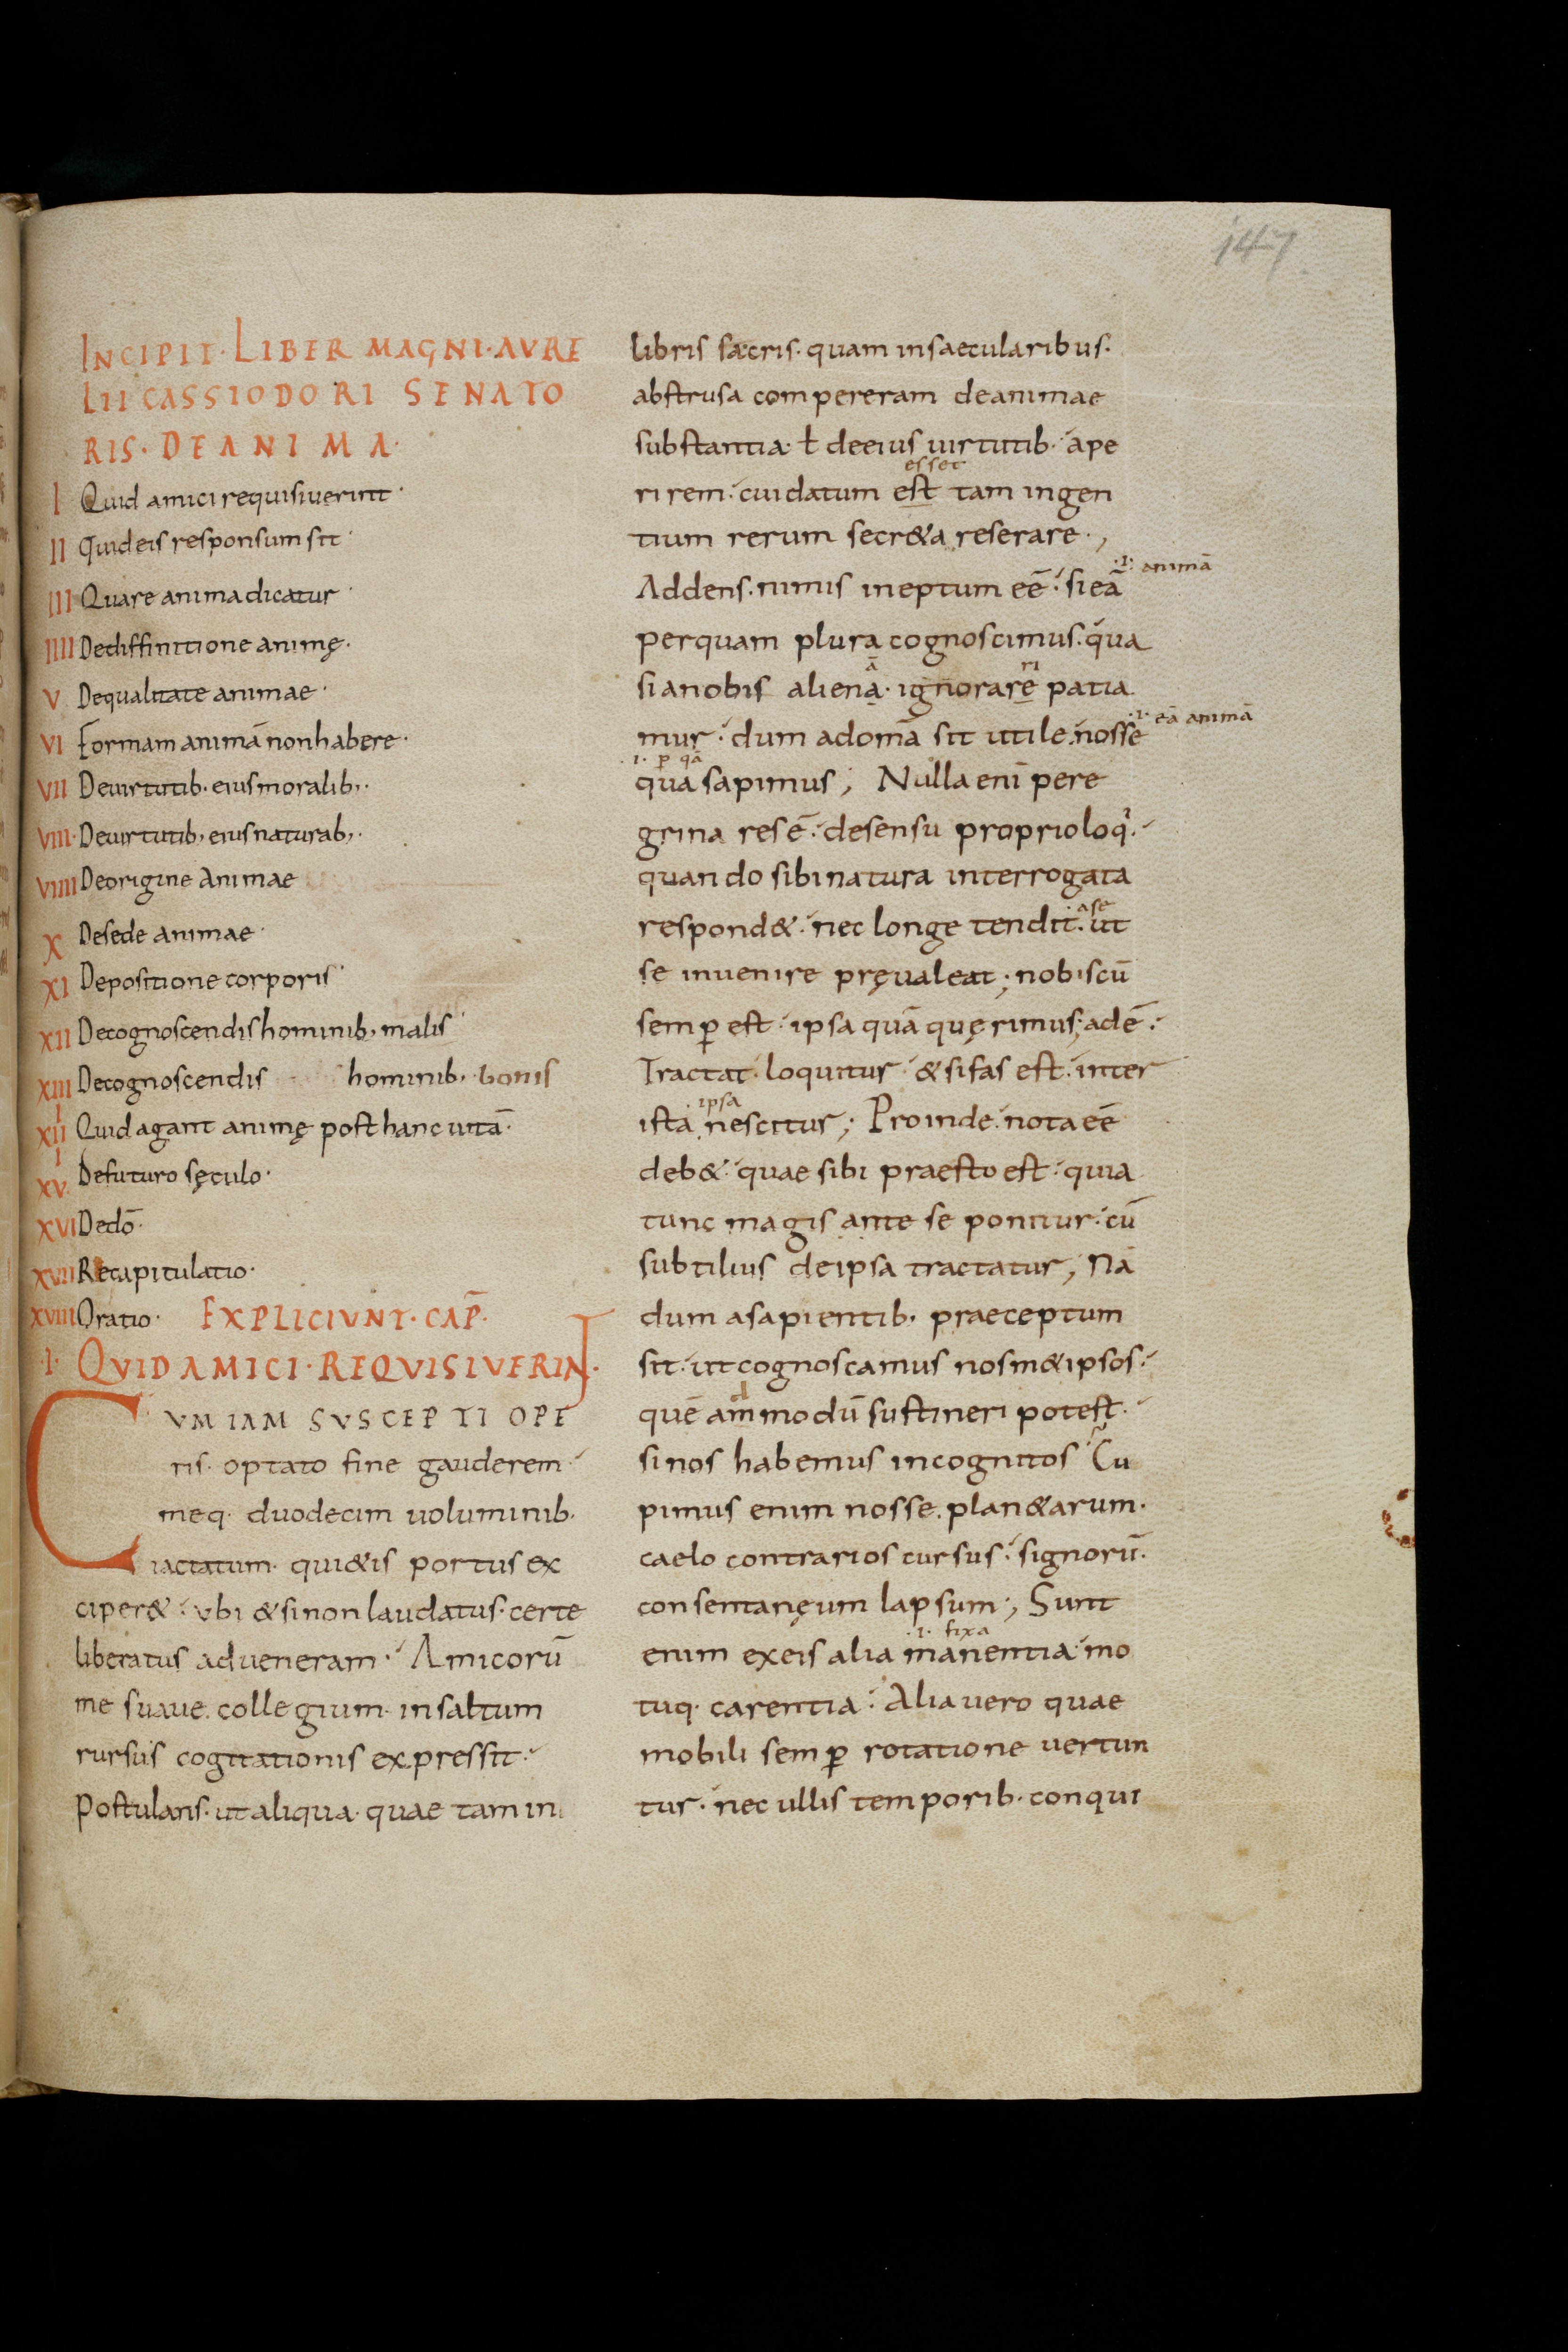 147
INCIPIT· LIBER MAGNI· AVRE
LII CASSIODORI SENATO
RIS· DE ANIMA·
I Quid amici requisiuerint·
II Quid eis responsum sit·
III Quare anima dicatur·
IIII De diffinitione animę·
V De qualitate animae·
VI Formam animā non habere·
VII De uirtutib· eius moralib·
VIII· De uirtutib· eius naturab·
VIIII De origine Animae
X De sede animae·
XI De positione corporis·
XII De cognoscendis hominib· malis
XIII De cognoscendis hominib· bonis
XIII Quid agant animę post hanc uitā·
XV· De futuro sęculo·
XVI De dō·
XVII Recapitulatio·
XVIII Oratio· EXPLICIVNT· CAP̄·
·I· QVID AMICI· REQVISIVERINT·
CVM IAM SVSCEPTI OPE
ris· optato fine gauderem·
meq· duodecim uoluminib·
iactatum· qui&is portus ex
ciper&· ubi & si non laudatus· certe
liberatus adueneram· Amicorū
me suaue· collegium· in saltum
rursus cogitationis expressit·
Postulans· ut aliqua· quae tam in
libris sacris· quam in saecularibus·
abstrusa compereram de animae
substantia· ł de eius uirtutib· ape
esset
rirem· cui datum est tam ingen
tium rerum secr&a reserare·,
·i· animā
Addens· nimis ineptum eē· si eā
per quam plura cognoscimus· qua
ā ri
si a nobis aliena· ignorare patia
·i· eā animā
mur· dum ad omā sit utile· nosse
·i· p qā
qua sapimus; Nulla enī pere
grina res ē· de sensu proprio loq·
quando sibi natura interrogata
a se
respond&· nec longe tendit· ut
se inuenire pręualeat; nobiscū
semp est· ipsa quā quęrimus; adē·
Tractat· loquitur· & si fas est· inter
ipsa
ista nescitur; Proinde· nota eē
deb&· quae sibi praesto est· quia
tunc magis ante se ponitur· cū
subtilius de ipsa tractatur; Nā
dum a sapientib· praeceptum
sit· ut cognoscamus nosm&ipsos·
d
quē ammodū sustineri potest·
si nos habemus incognitos· Cu
pimus enim nosse· plan&arum·
caelo contrarios cursus· signorū·
consentanęum lapsum·, Sunt
·i· fixa
enim ex eis alia manentia· mo
tuq· carentia· Alia uero quae
mobili semp rotatione uertun
tur· nec ullis temporib· conqui